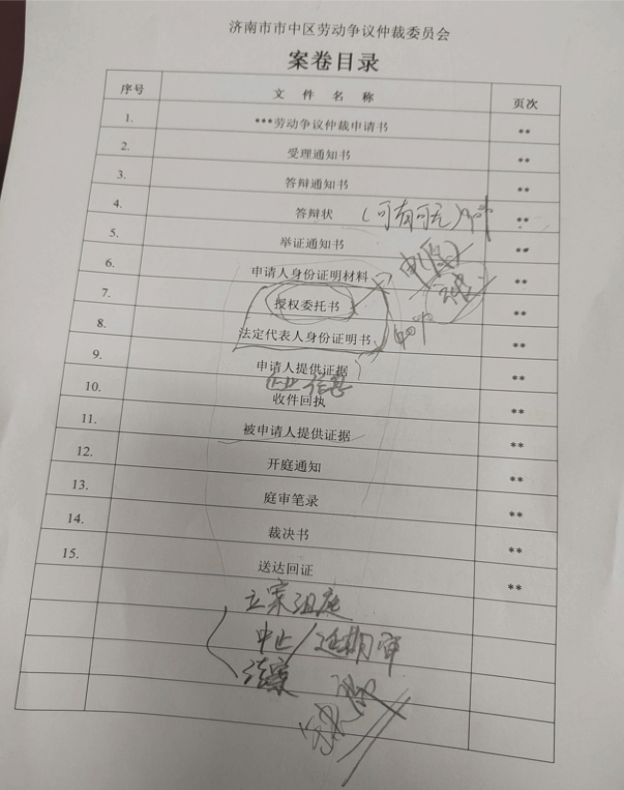 济南市市中区劳动争议仲裁委员会
案卷目录
序号 文件名称 页次
1. ***劳动争议仲裁申请书 **
2. 受理通知书 **
3. 答辩通知书 **
4. 答辩状 (可有可无) **
5. 举证通知书 **
6. 申请人身份证明材料 **
7. 授权委托书 **
8. 法定代表人身份证明书 **
9. 申请人提供证据 **
企业信息
10. 收件回执 **
11. 被申请人提供证据 **
12. 开庭通知 **
13. 庭审笔录 **
14. 裁决书 **
15. 送达回证 **
立案组庭
中止/延期审
结案